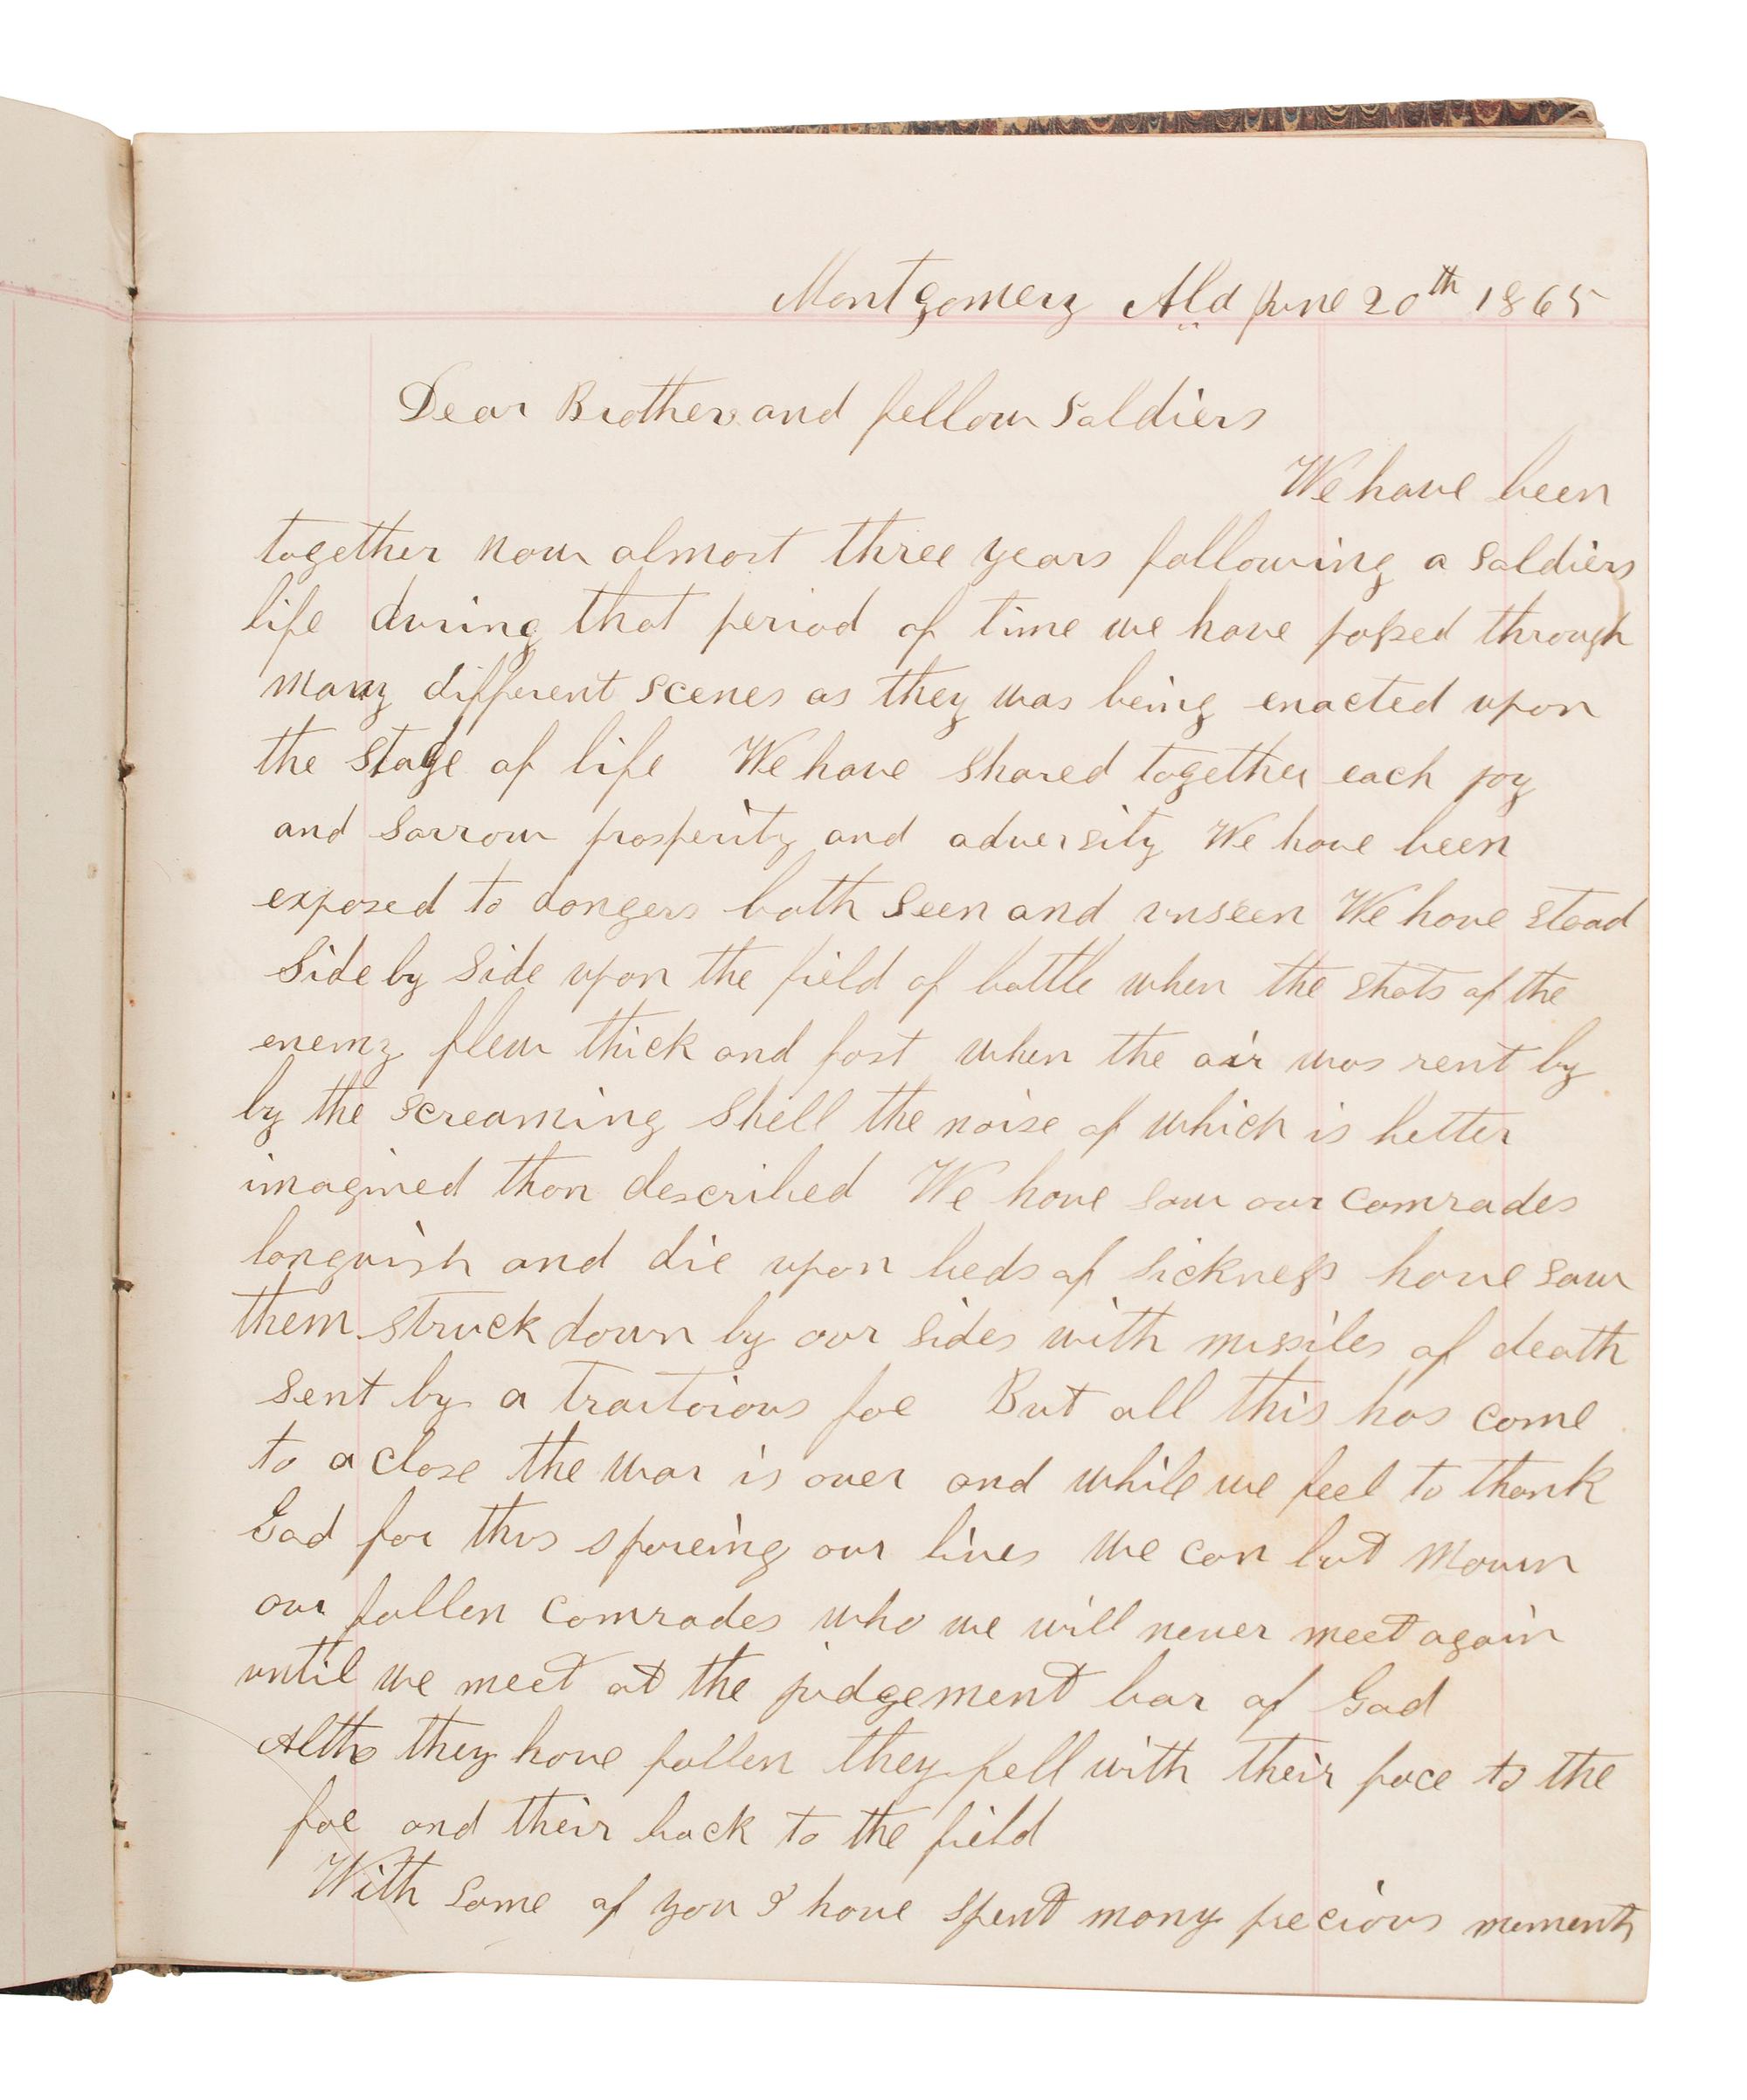 Montgomery Ala June 20th 1865
Dear Brothers and fellow Soldiers
We have been
together now almost three years following a Soldiers
life during that period of time we have passed through
many different scenes as they was being enacted upon
the stage of life We have shared together each joy
and sorrow prosperity and adversity We have been
exposed to dangers both seen and unseen We have stood
Side by Side upon the field of battle when the shots of the
enemy flew thick and fast when the air was rent by
by the screaming shell the noise of which is better
imagined than described We have saw our comrades
languish and die upon beds of sickness have saw
them struck down by our sides with missiles of death
sent by a traitorious foe But all this has come
to a close the war is over and while we feel to thank
God for thus spareing our lives we can but mourn
our fallen comrades who we will never meet again
until we meet at the judgement bar of God
Altho they have fallen they fell with their face to the
foe and their back to the field
With some of you I have spent many precious moments